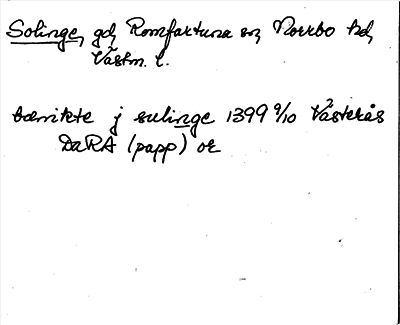 Solinge, gd, Romfartuna sn, Norrbo hd,
Västm. l.
benikte j sulinge 1399 9/10 Västerås
DaRA (papp) or